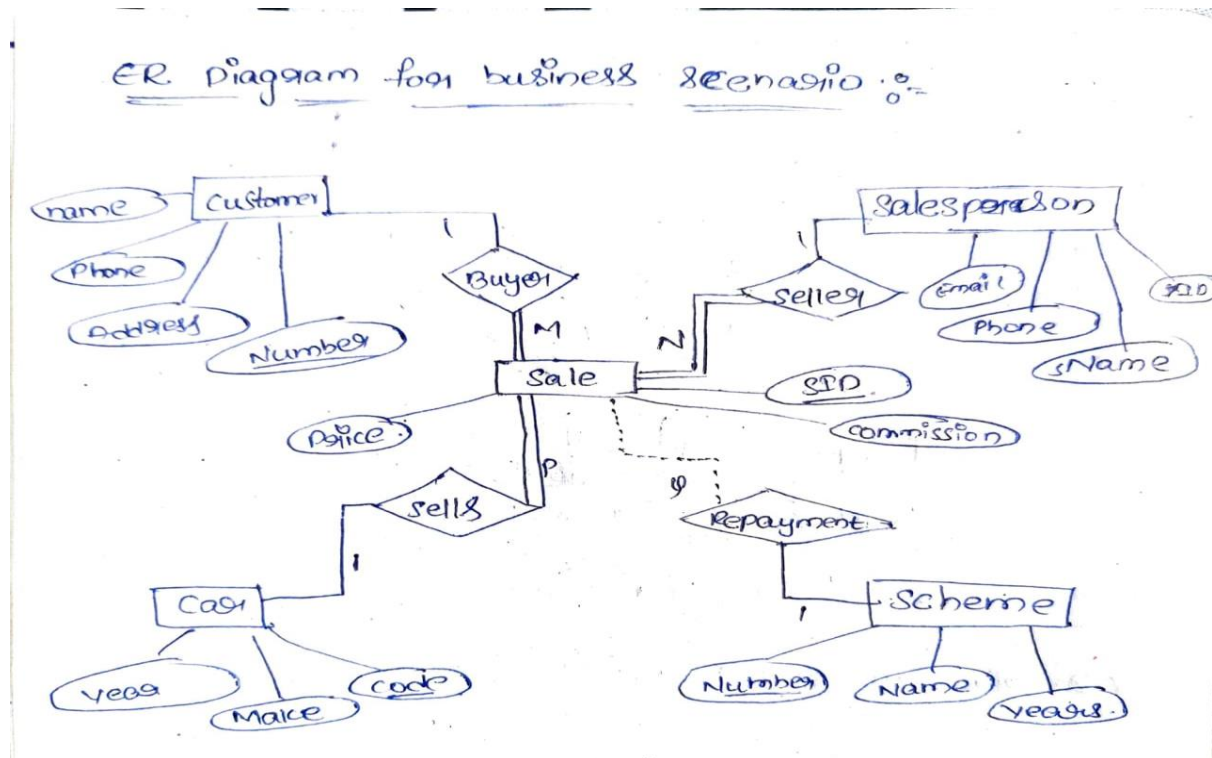 ER Diagram for business scenario :-
Customer
name
Phone
Address
Number
1
Buyer
M
Salesperson
1
Seller
N
Email
Phone
sName
Sale
SID
Commission
Price
P
Sells
1
Car
Year
Make
Code
Repayment
1
Scheme
Number
Name
Years.